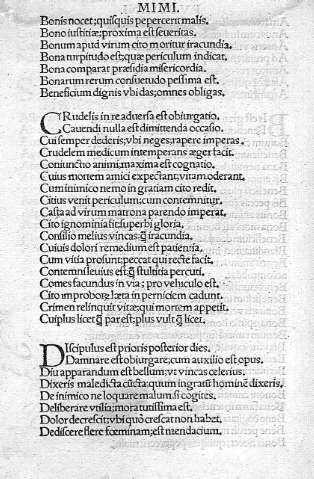 MIMI.
Bonis nocet; quisquis pepercerit malis.
Bono iustitiæ; proxima est seueritas.
Bonum apud virum cito moritur iracundia.
Bona turpitudo est; quæ periculum indicat.
Bona comparat præsidia misericordia.
Bonarum rerum consuetudo pessima est.
Beneficium dignis vbi das; omnes obligas.
CRudelis in re aduersa est obiurgatio.
Cauendi nulla est dimittenda occasio.
Cui semper dederis; vbi neges; rapere imperas.
Crudelem medicum intemperans æger facit.
Coniunctio animi; maxima est cognatio.
Cuius mortem amici expectant; vitam oderant.
Cum inimico nemo in gratiam cito redit.
Citius venit periculum; cum contemnitur.
Casta ad virum matrona parendo imperat.
Cito ignominia fit superbi gloria.
Consilio melius vincas; q̃ iracundia.
Cuiuis dolori remedium est patientia.
Cum vitia prosunt; peccat qui recte facit.
Contemni leuius est; q̃ stultitia percuti.
Comes facundus in via; pro vehiculo est.
Cito improborum læta in perniciem cadunt.
Crimen relinquit vitæ; qui mortem appetit.
Cui plus licet q̃ par est; plus vult q̃ licet.
DIscipulus est prioris posterior dies.
Damnare est obiurgare; cum auxilio est opus.
Diu apparandum est bellum; vt vincas celerius.
Dixeris maledicta cūcta; quum ingratū hominē dixeris.
De inimico ne loquare malum; si cogites.
Deliberare vtilia; mora tutissima est.
Dolor decrescit; vbi quo crescat non habet.
Dediscere flere fœminam; est mendacium.